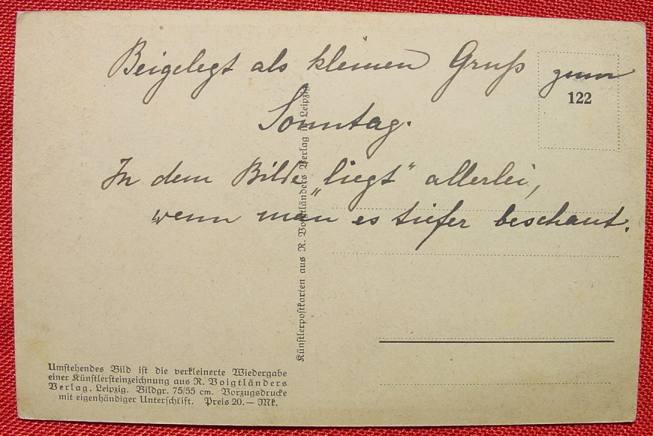 Beigelegt als kleinen Gruß zum
Sonntag.
In dem Bilde „liegt“ allerlei,
wenn man es tiefer beschaut.
122
Künstlerpostkarten aus R. Voigtländers Verlag in Leipzig.
Umstehendes Bild ist die verkleinerte Wiedergabe
einer Künstlersteinzeichnung aus R. Voigtländers
Verlag, Leipzig. Bildgr. 75/55 cm. Vorzugsdrucke
mit eigenhändiger Unterschrift. Preis 20.— Mk.